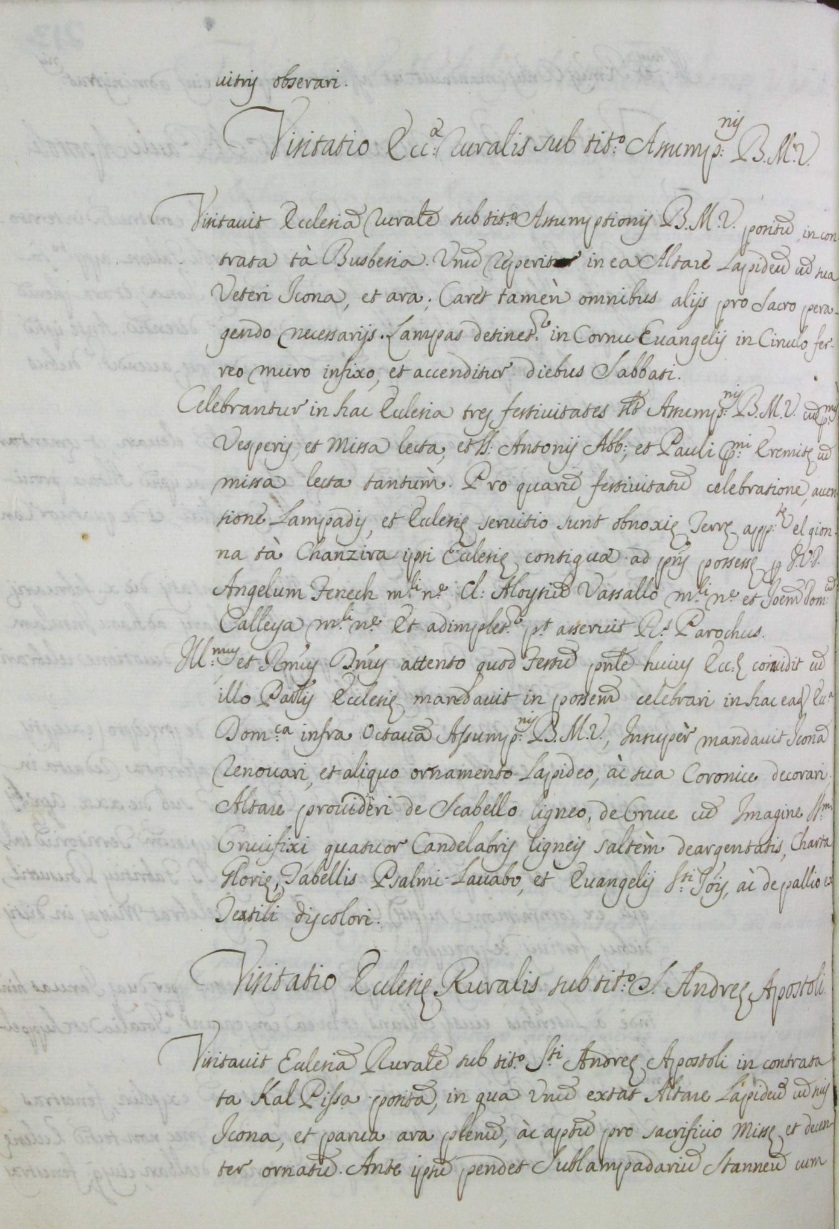 vitrijs obserari.
Visitatio Ecc.æ Ruralis sub tit.º Assump.nis B.M.V.
Visitavit Ecclesiā Ruralē sub tit.º Assumptionis B.M.V. positā in con
trata tà Busbesia. Unū reperitur in ea Altare Lapideū cū sua
Veteri Icona, et ara; Caret tamèn omnibus alijs pro Sacro pera
gendo necessarijs. Lampas detinet.r in Cornu Evangelij in Circulo fer-
reo muro infixo, et accenditur diebus Sabbati.
Celebrantur in hac Ecclesia tres festivitates Assump.nis B.M.V. cū p.mis
Vesperis et Missa lecta, et S. Antonij Abb: et Pauli p.mi Eremitę cū
missa lecta tantùm. Pro quarū festivitatū celebratione, accen
sione Lampadis, et Ecclesię servitio sunt obnoxię Terrę app.tę el gion
na tà Chanzira ipsi Ecclesię contiguæ ad pñs possessę p
Angelum Fenech m.li n.e Cl: Aloysiū Vassallo m.li n.e et Joēm Dom.cū
Calleya m.li n.e Et adimplet.r p.t asseruit R.s Parochus.
Ill.mus et R̃mus Dñus attento quod Festū pñle huius Ecc.ę coincidit cū
illo Paro͠lis Ecclesię mandavit in posterū celebrari in hac eadē Ecc.a
Dom.ca infra Octavā Assump.nis B.M.V., Insupèr mandavit Iconā
renovari, et aliquo ornamento Lapideo, ac sua Coronice decorari
Altare provideri de Scabello ligneo, de Cruce cū Imagine SS.mi
Crucifixi quatuor Candelabris ligneis saltèm deargentatis, Charta
Glorię, Tabellis Psalmi Lavabo, et Evangelij S.ti Jo͠is, ac de pallio ex
Textili discolori.
Visitatio Ecclesię Ruralis sub tit.º S. Andreę Apostoli
Visitavit Ecclesiā Ruralē sub tit.º S.ti Andreę Apostoli in contrata
ta Kal Pissa positā, in qua Unū extat Altare Lapideū cū sua
Icona, et parva ara plenū, ac aptū pro sacrificio Missę et decen
ter ornatū. Ante ipsū pendet Sublampadariū Stanneū cum